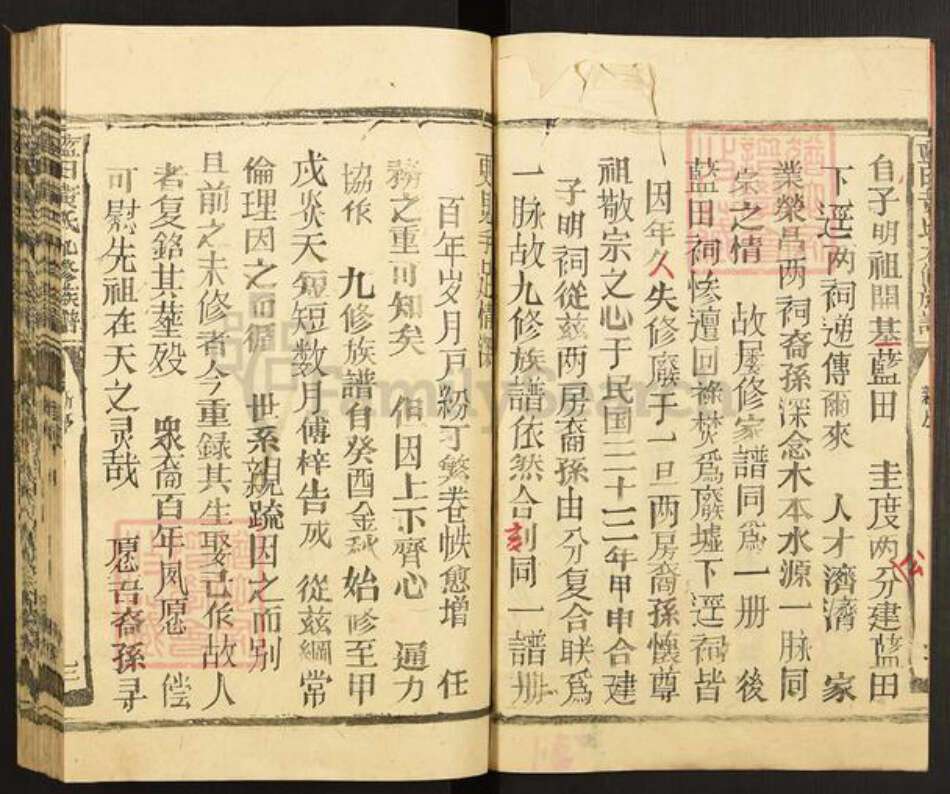 自子明祖開基藍田 圭度两公分建藍田
下逕两祠递傳爾來 人才濟濟 家
業榮昌两祠裔孫深念木本水源一脉同
宗之情 故屡修家譜同爲一册 後
藍田祠惨遭回祿焚爲廢墟下逕祠皆
因年久失修廢于一旦两房裔孫懷尊
祖敬宗之心于民国三十三年甲申合建
子明祠從兹两房裔孫由分复合联爲
一脉故九修族譜依然合刻同一譜册
百年岁月戸粉丁繁卷帙愈增 任
務之重可知矣 但因上下齊心 通力
協作 九修族譜自癸酉金秋始修至甲
戍炎天短短数月傅梓告成 從兹綱常
倫理因之而循 世系親疏因之而别
且前之未修者今重録其生娶已作故人
者复銘其塟殁 衆裔百年夙愿 偿
可慰先祖在天之灵哉 愿吾裔孫寻
藍田黄氏九修族譜
FamilySearch